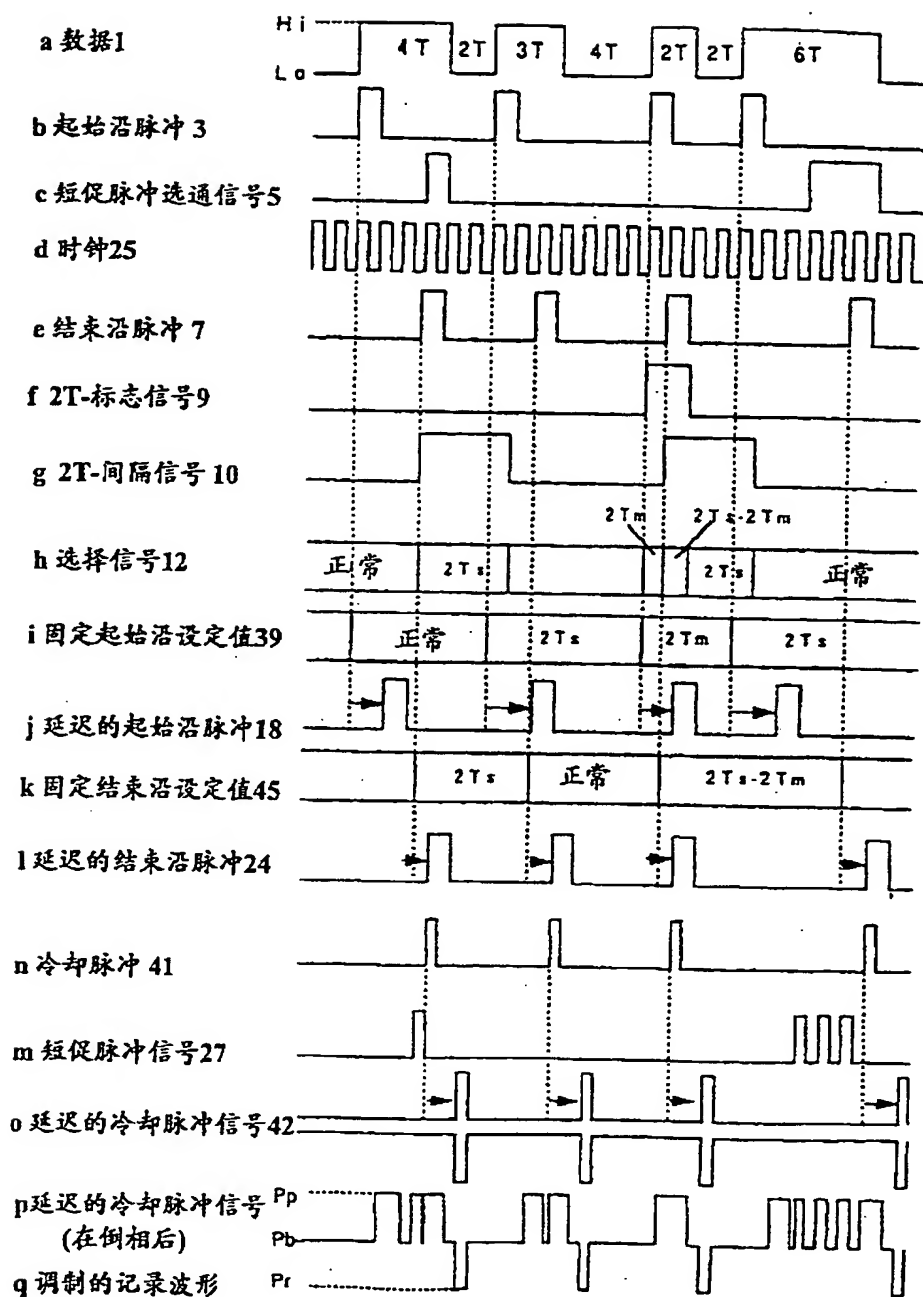 Hi
a 数据1
4T 2T 3T 4T 2T 2T 6T
Lo
b 起始沿脉冲 3
c 短促脉冲选通信号5
d 时钟25
e 结束沿脉冲 7
f 2T-标志信号9
g 2T-间隔信号 10
2Tm 2Ts-2Tm
h 选择信号12
正常 2Ts 2Ts 正常
i 固定起始沿设定值39
正常 2Ts 2Tm 2Ts
j 延迟的起始沿脉冲18
k 固定结束沿设定值45
2Ts 正常 2Ts-2Tm
l 延迟的结束沿脉冲24
n 冷却脉冲 41
m 短促脉冲信号27
o 延迟的冷却脉冲信号42
p延迟的冷却脉冲信号 Pp
(在倒相后) Pb
q 调制的记录波形 Pr